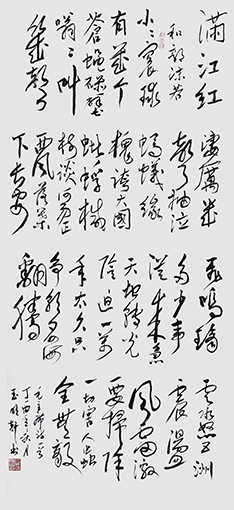 满江红
和郭沫若
小小寰球
有几个
苍蝇碰壁
嗡嗡叫
几声
凄厉几
声抽泣
蚂蚁缘
槐夸大国
蚍蜉撼
树谈何易正
西风落叶
下长安
飞鸣镝
多少事
从来急
天地转光
阴迫一万
年太久只
争朝夕四海
翻腾
云水怒五洲
震荡
风雷激
要扫除
一切害人虫
全无敌
毛主席